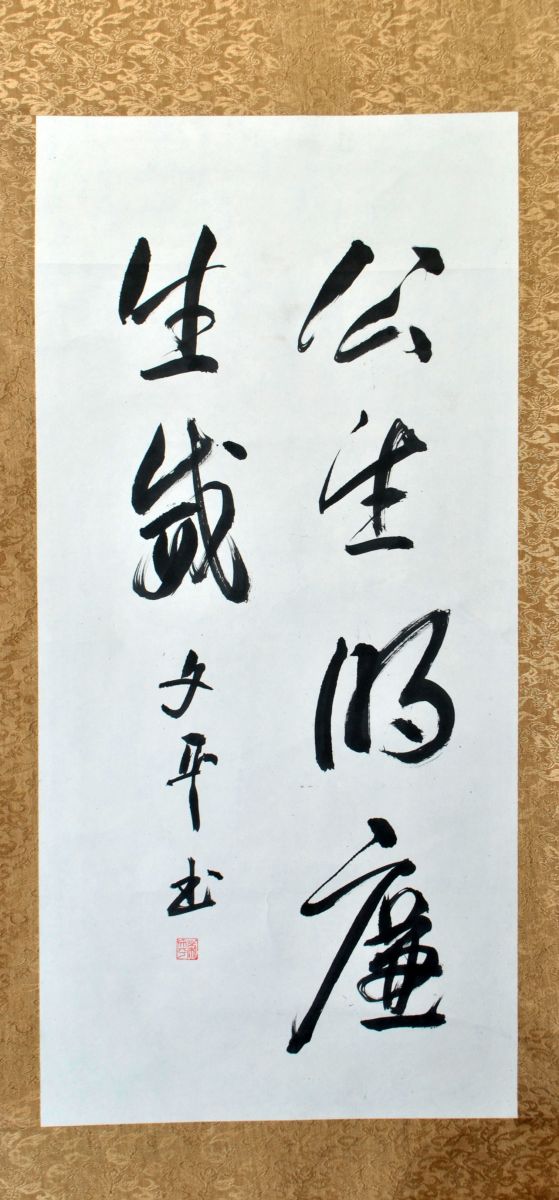 公生明廉
生威 文平书